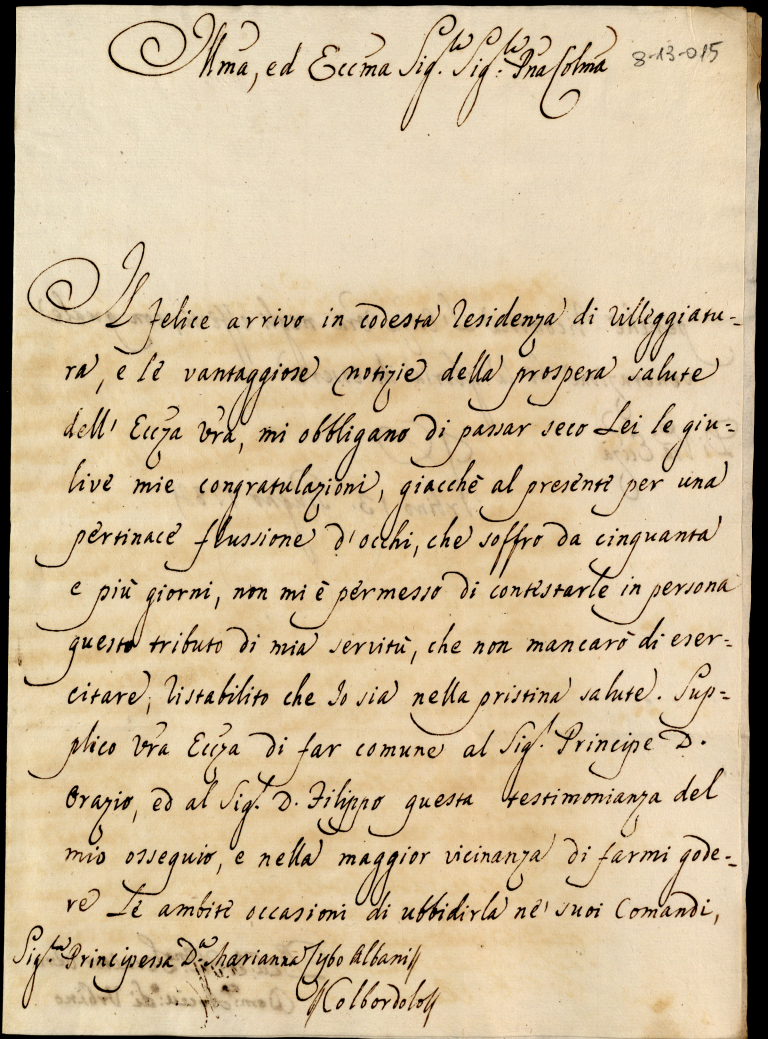 Illma, ed Eccma Sig.ra Sig.ra Pna Colma
8-13-015
Il felice arrivo in codesta Residenza di Villeggiatu=
ra, e le vantaggiose notizie della prospera salute
dell' Eccza Vra, mi obbligano di passar seco Lei le giu=
live mie congratulazioni, giacchè al presente per una
pertinace flussione d'occhi, che soffro da cinquanta
e più giorni, non mi è permesso di contestarle in persona
questo tributo di mia servitù, che non mancarò di eser=
citare, ristabilito che Io sia nella pristina salute. Sup=
plico Vra Eccza di far comune al Sigr. Principe D.
Orazio, ed al Sigr. D. Filippo questa testimonianza del
mio ossequio, e nella maggior vicinanza di farmi gode=
re le ambite occasioni di ubbidirla ne' suoi Comandi,
Sig.ra Principessa D.a Marianna Cybo Albani//
//Colbordolo//